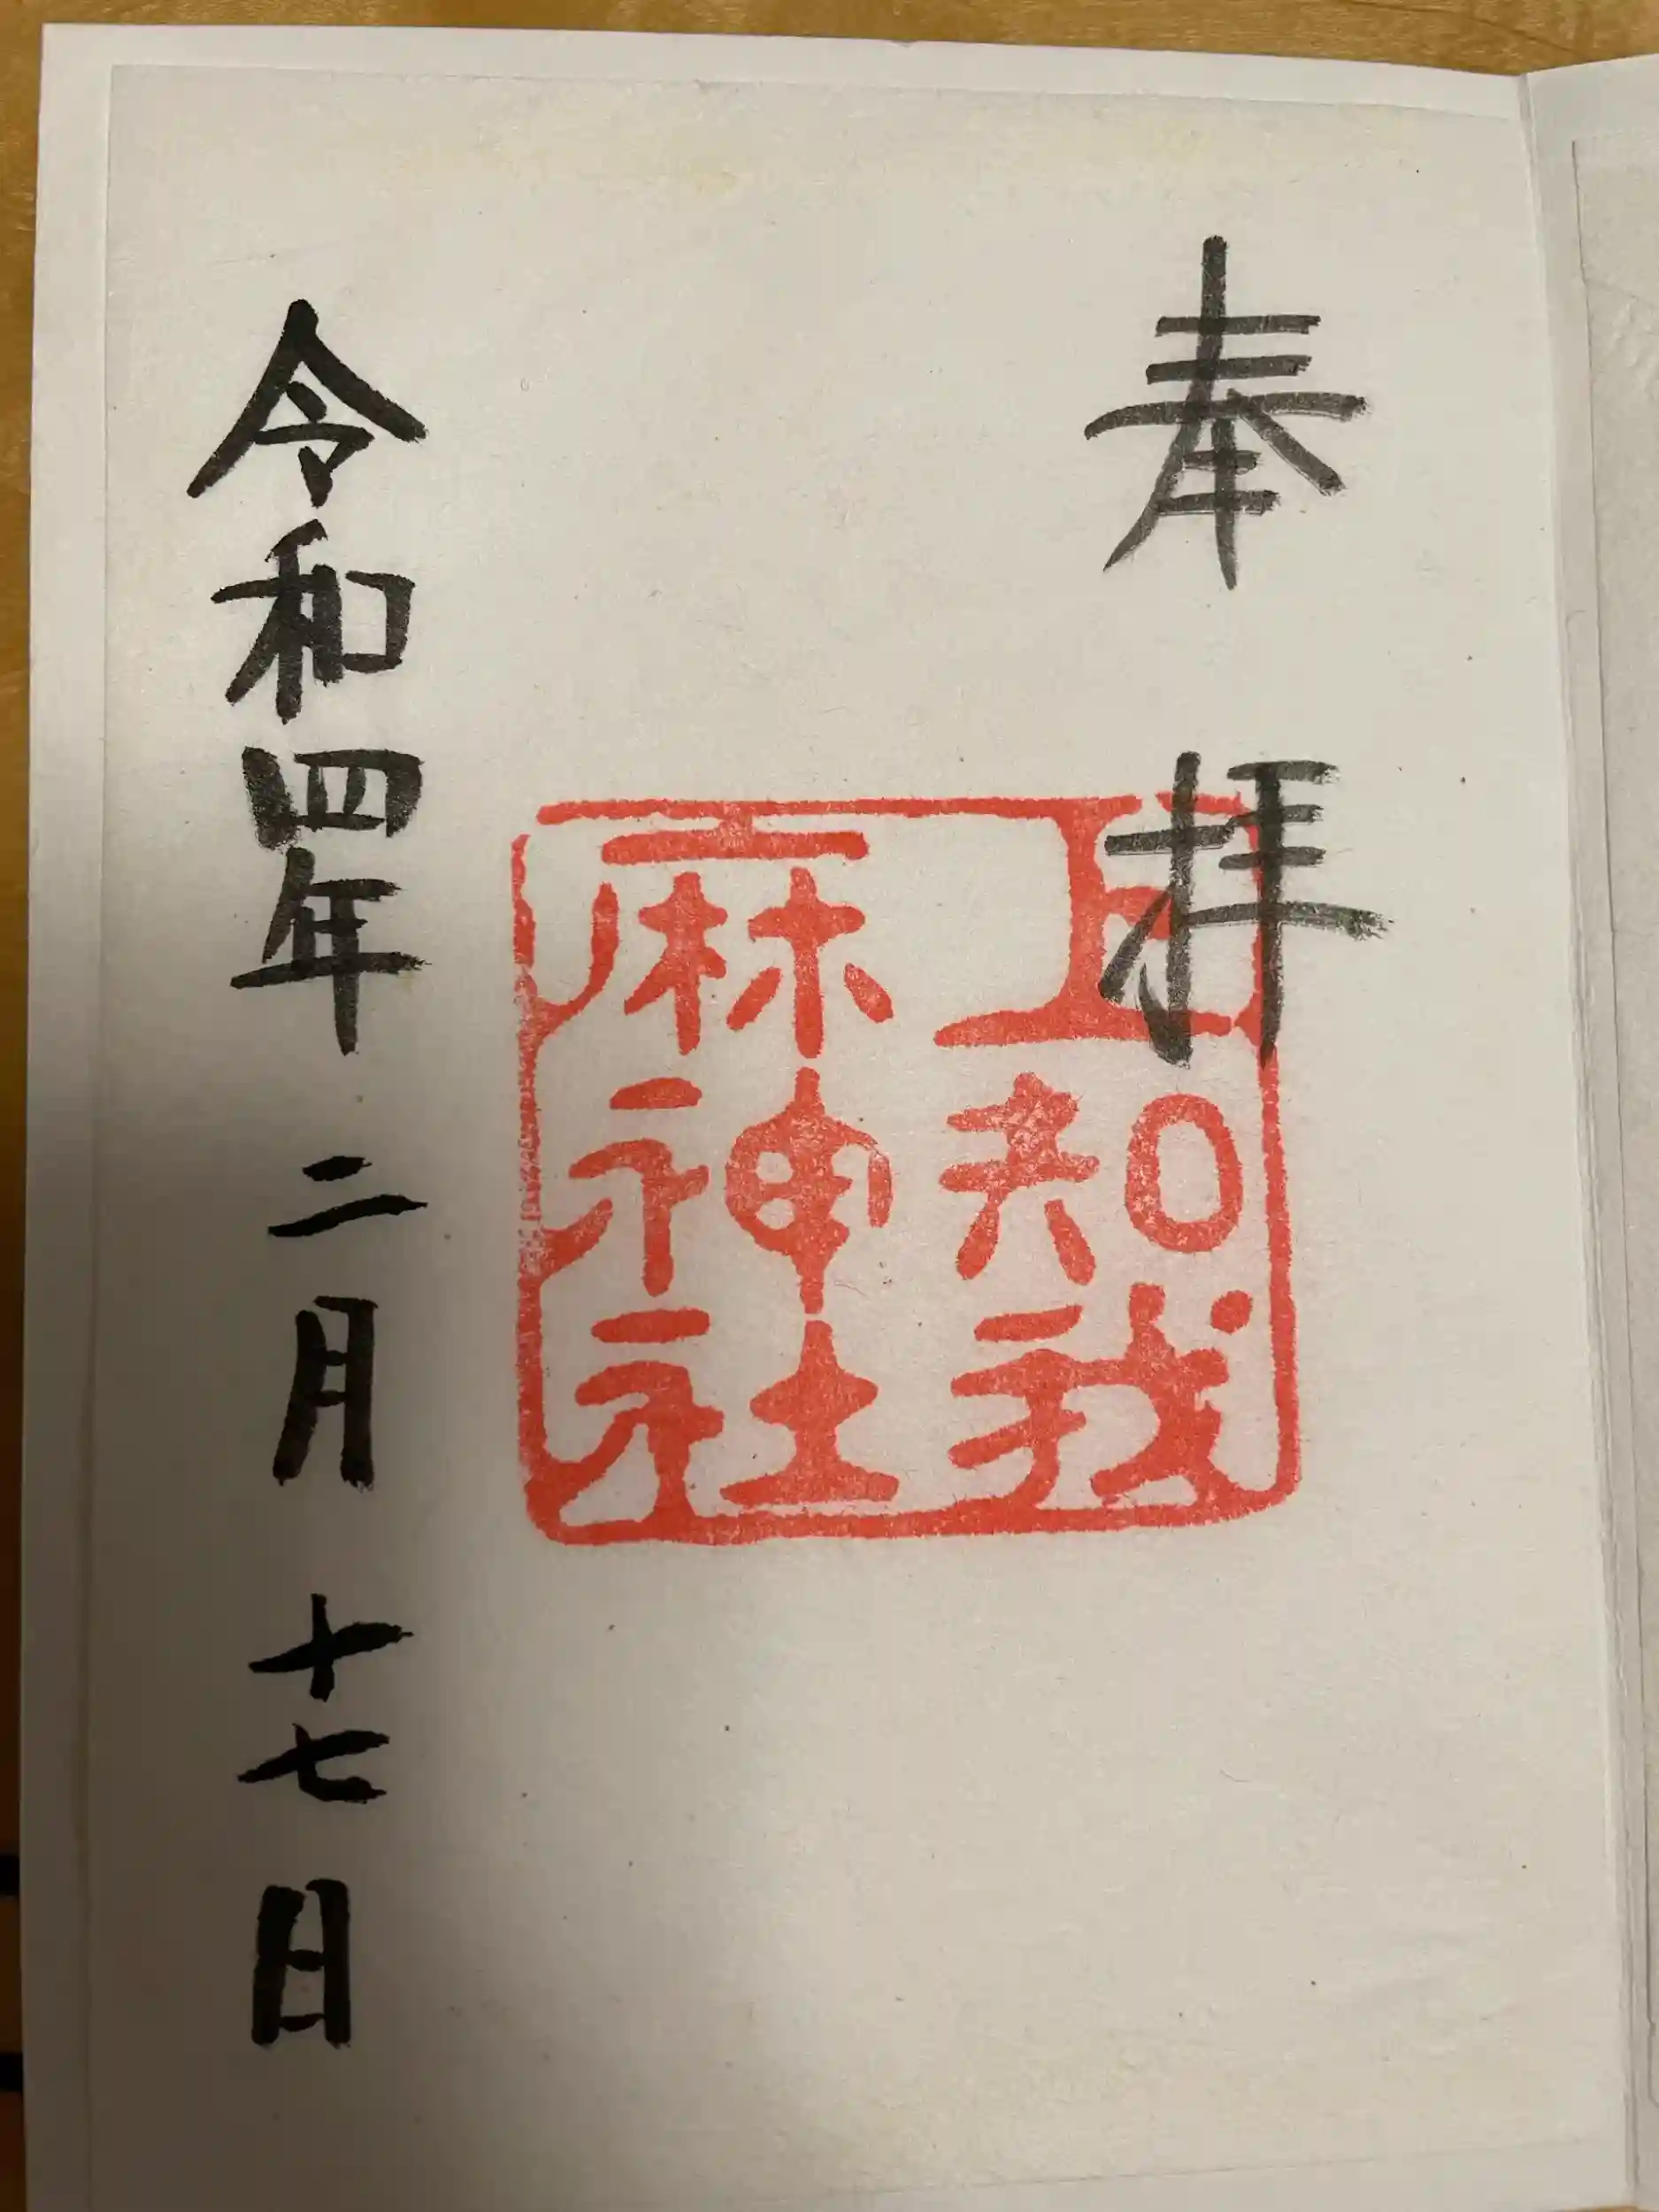 奉拝
上知我
麻神社
令和四年二月十七日